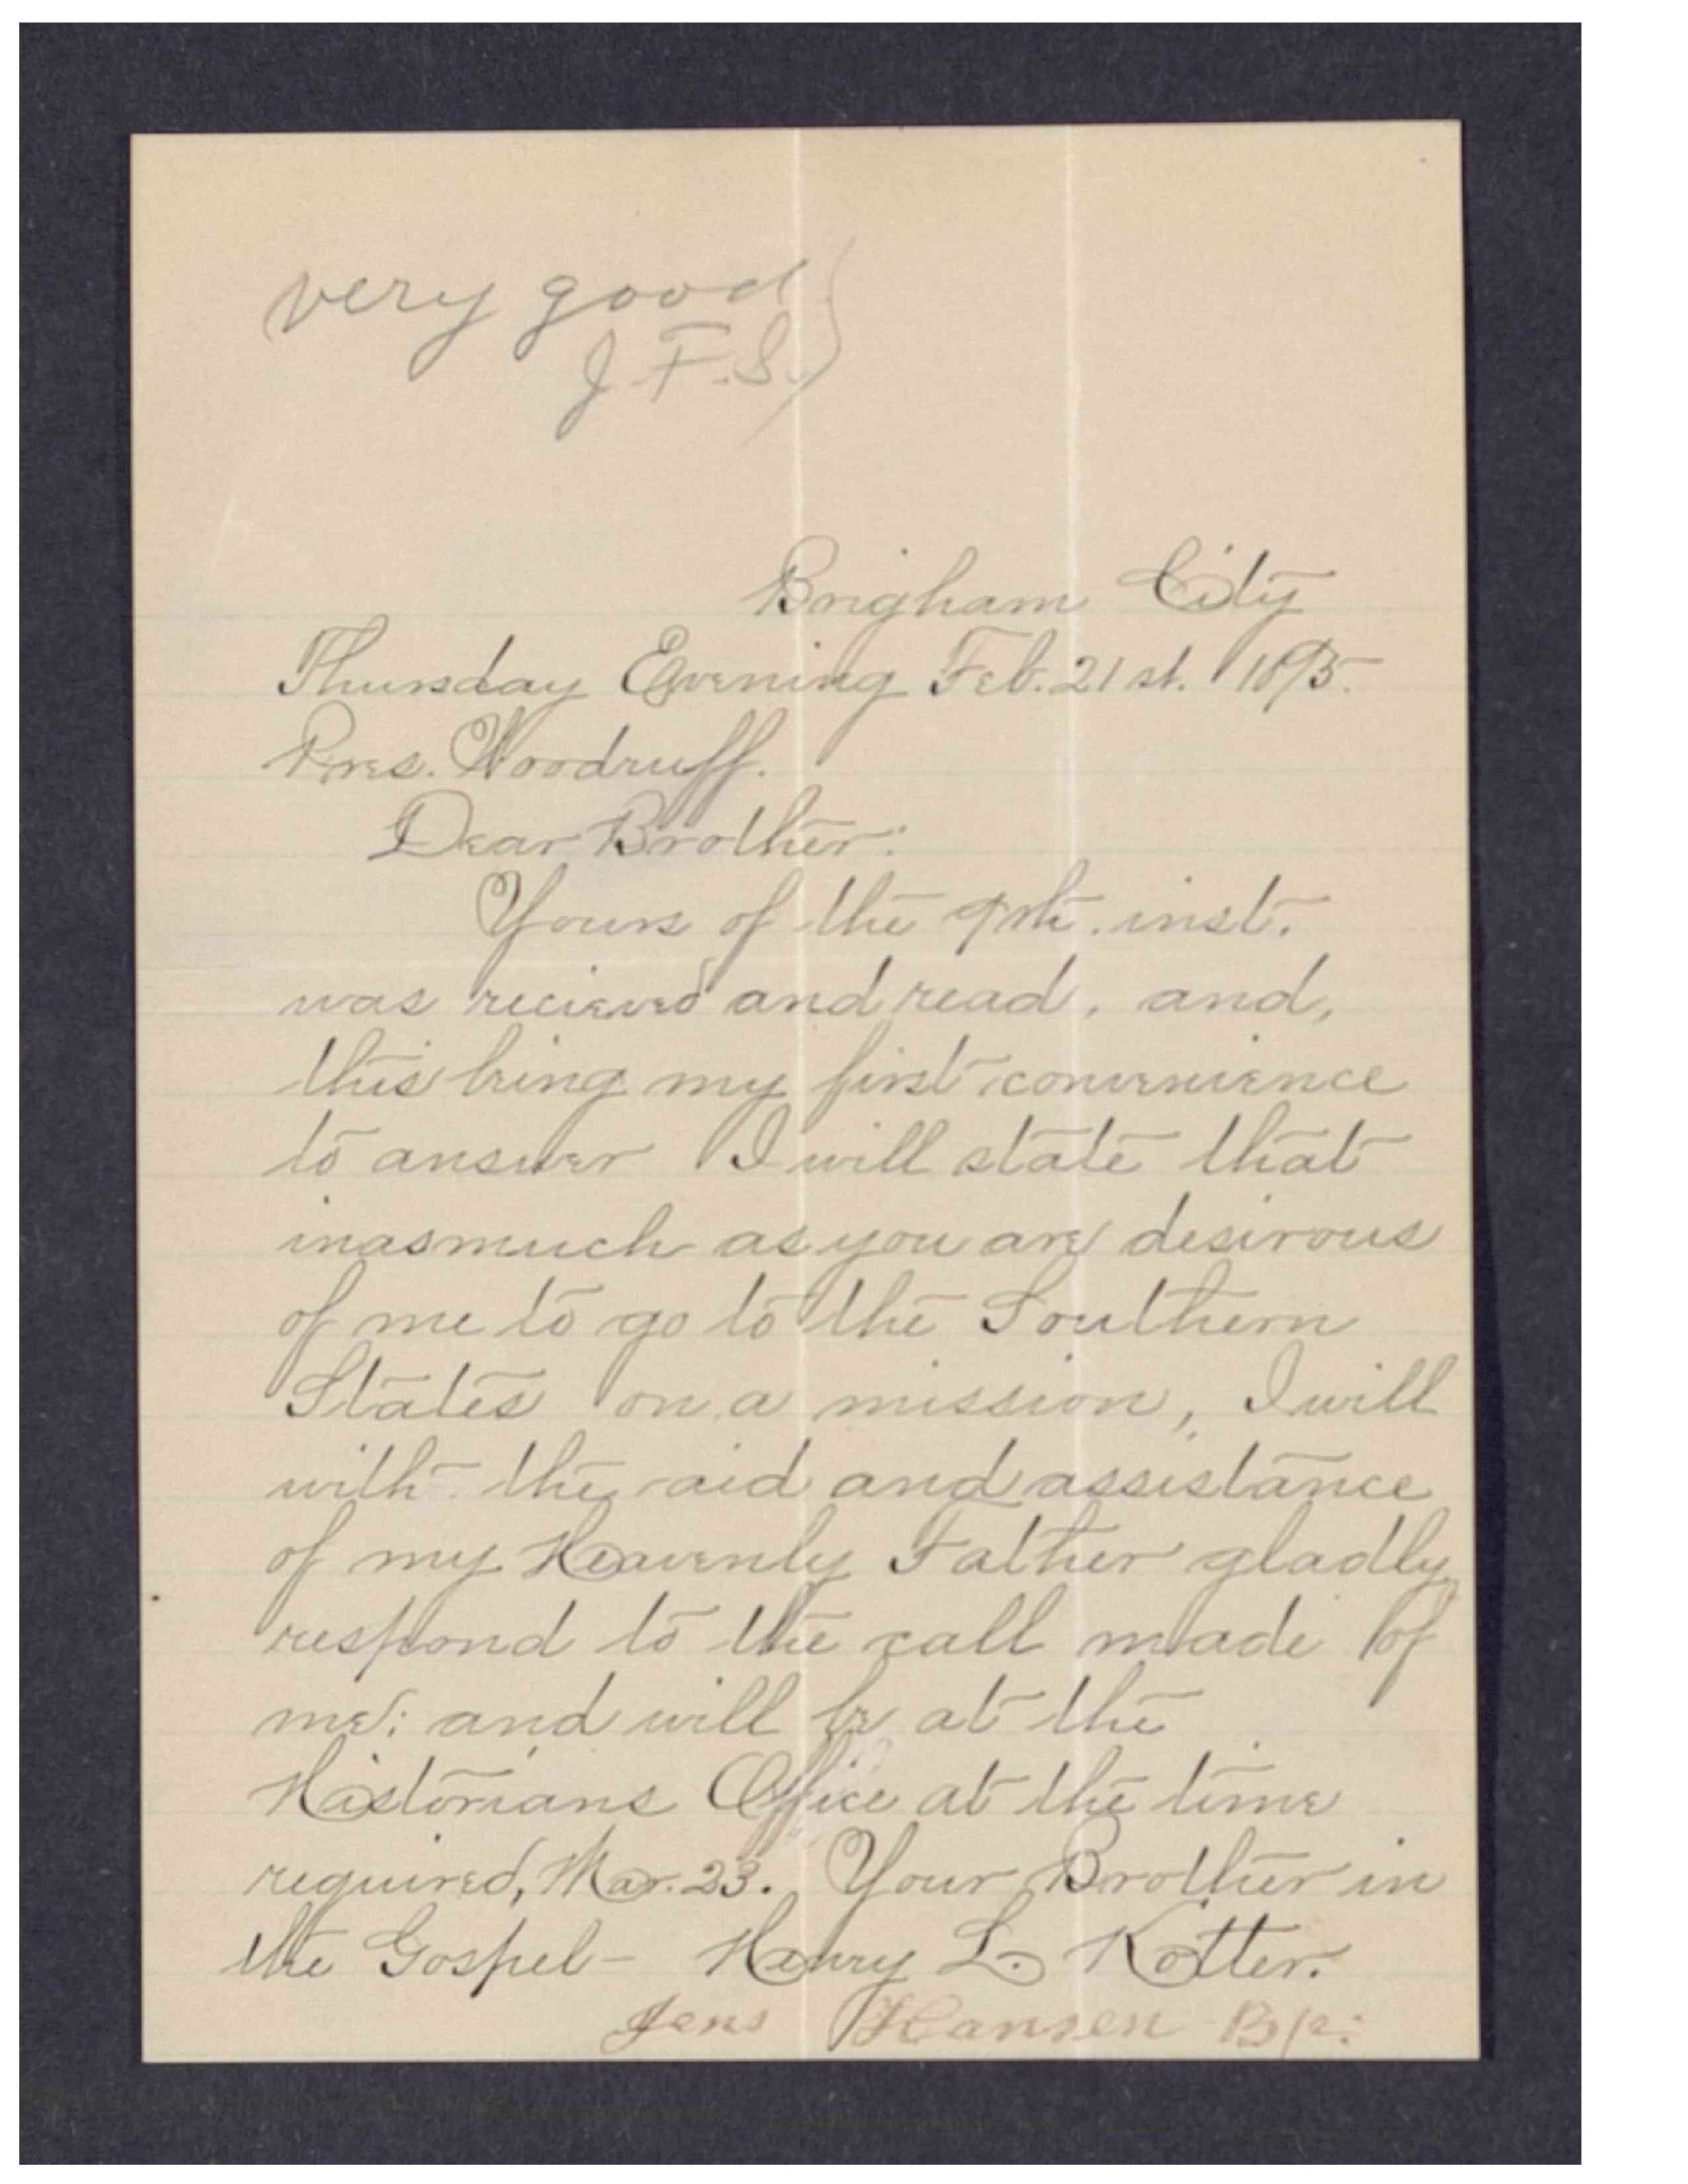 very good
J. F. S.
Brigham City
Thursday Evening Feb. 21st. 1895.
Pres. Woodruff.
Dear Brother:
Yours of the 9th. inst.
was recieved and read, and,
this being my first convenience
to answer I will state that
inasmuch as you are desirous
of me to go to the Southern
States on a mission, I will
with the aid and assistance
of my Heavenly Father gladly
respond to the call made of
me: and will be at the
Historians Office at the time
required, Mar. 23. Your Brother in
the Gospel - Henry L. Kotter.
Jens Hansen Bp: